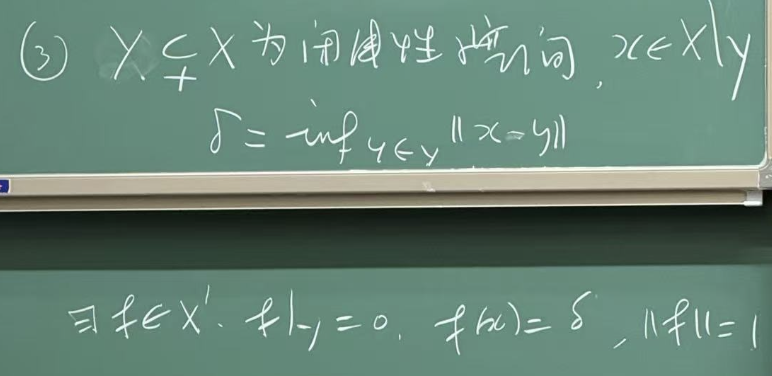 ③ Y ⊊ X 为闭线性空间, x∈X\Y
δ = inf_{y∈Y} ||x-y||
∃ f∈X'. f|_Y = 0, f(x) = δ, ||f|| = 1